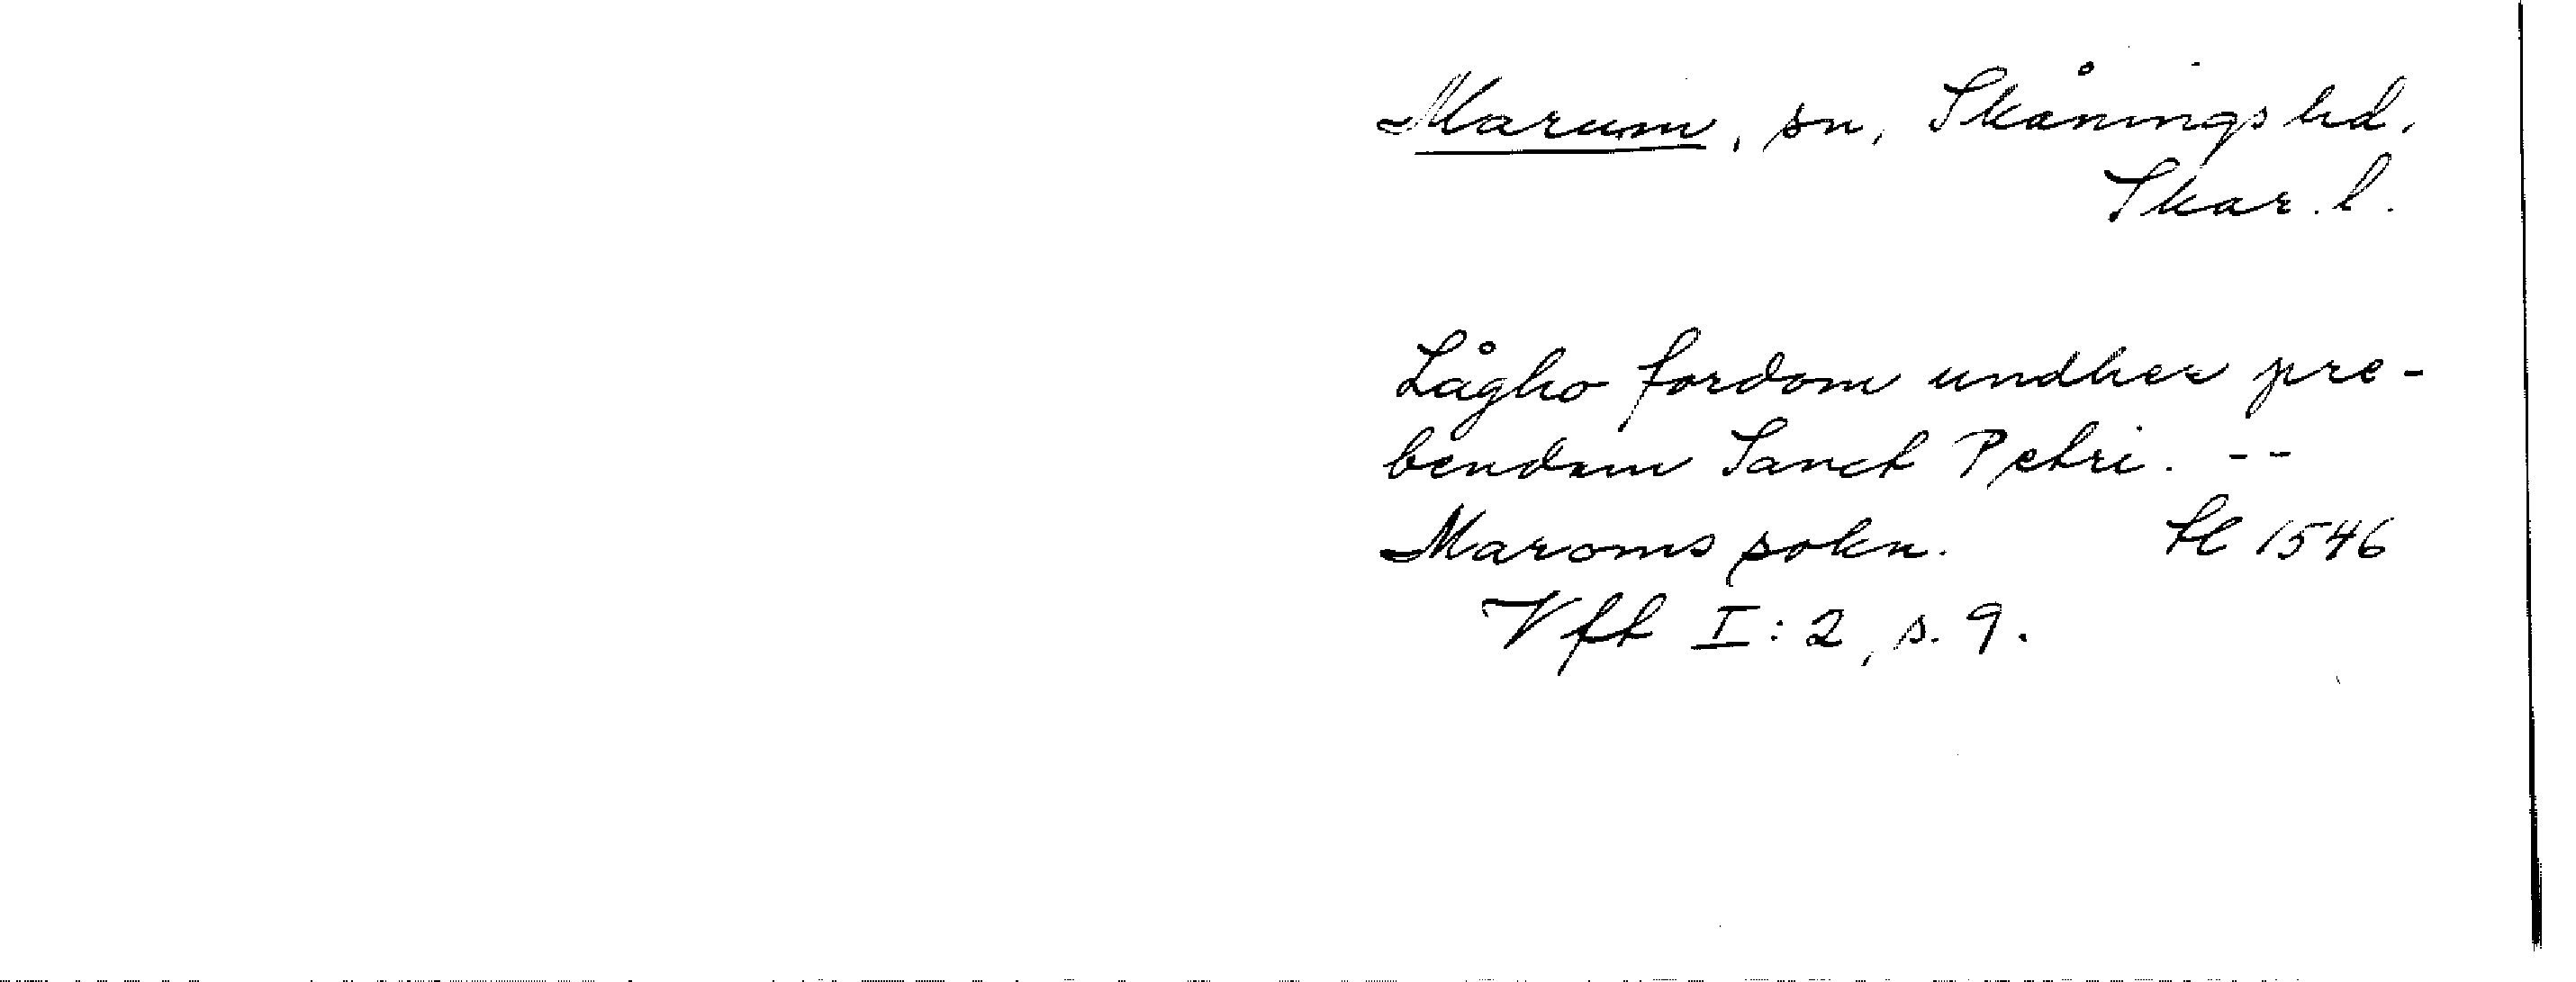 Marum, sn, Skånings hd.
Skar. l.
Lågho fordom undher pre-
bendam Sanct Petri. --
Maroms sokn. tl 1546
Vft I:2, s. 9.